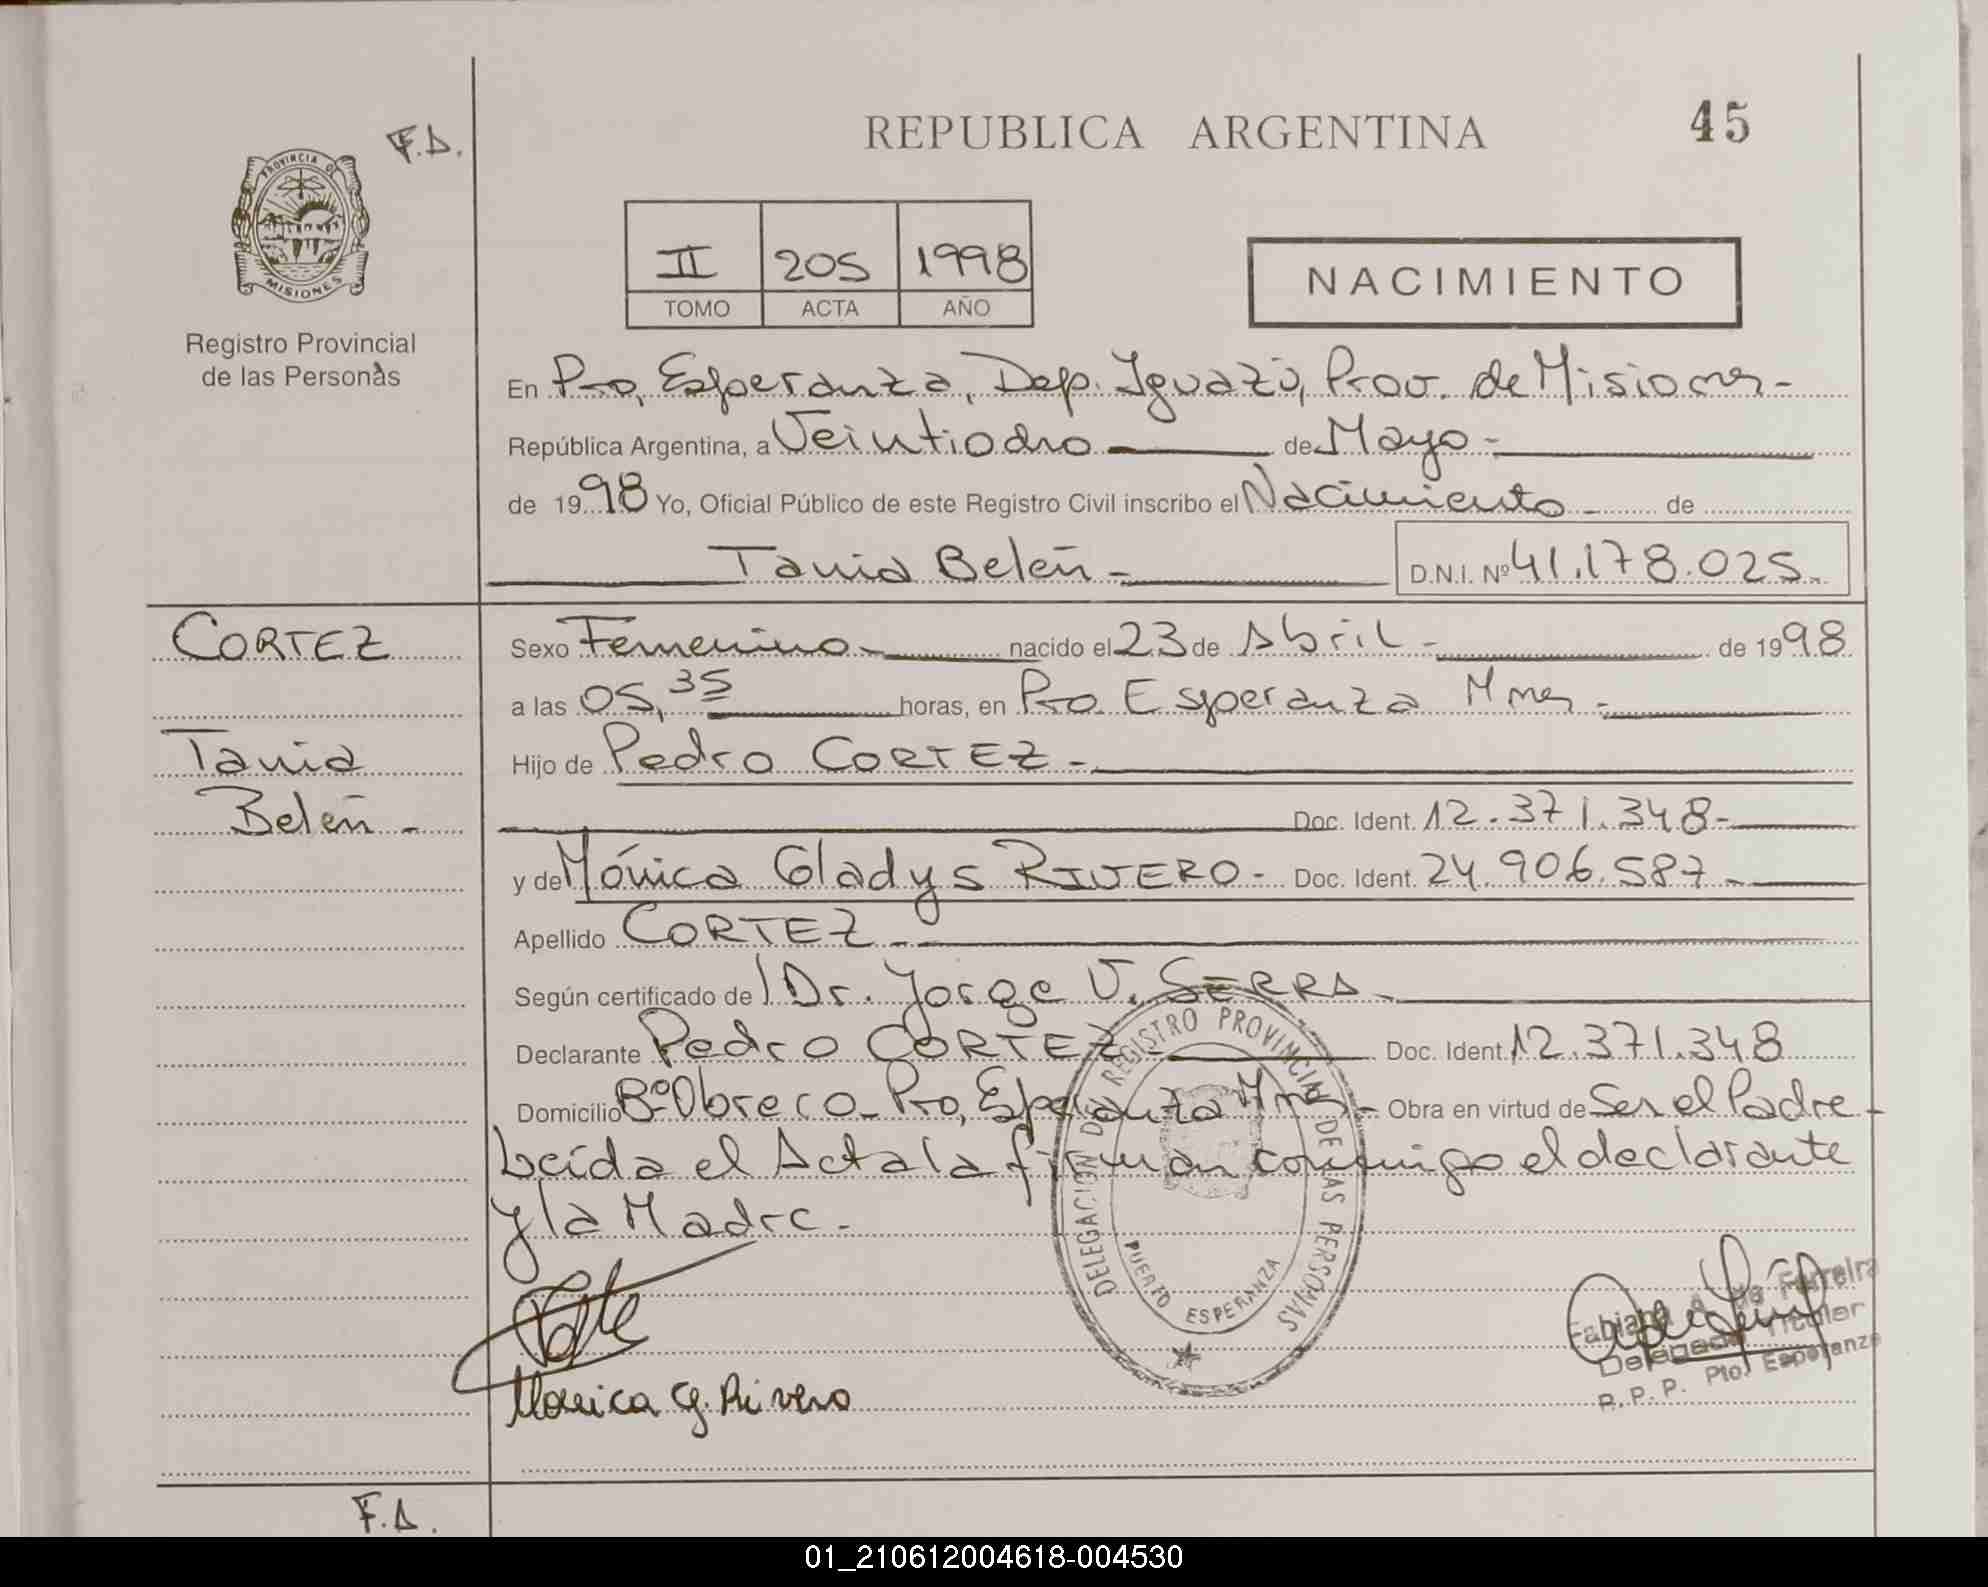 F.A.
REPUBLICA ARGENTINA
45
PROVINCIA DE
MISIONES
Registro Provincial
de las Personas
II 205 1998
TOMO ACTA AÑO
NACIMIENTO
En Pto, Esperanza, Dep. Iguazú, Prov. de Misiones-
República Argentina, a Veintiocho de Mayo-
de 1998 Yo, Oficial Público de este Registro Civil inscribo el Nacimiento - de
Tania Belén - D.N.I. Nº 41.178.025.
CORTEZ
Tania
Belén -
Sexo Femenino - nacido el 23 de Abril - de 1998
a las 05,35 horas, en Pto. Esperanza Mnes -
Hijo de Pedro CORTEZ -
Doc. Ident. 12.371.348-
y de Mónica Gladys RIVERO - Doc. Ident. 24.906.587-
Apellido CORTEZ -
Según certificado de Dr. Jorge V. SERRA -
Declarante Pedro CORTEZ - Doc. Ident. 12.371.348
Domicilio Bº Obrero - Pto, Esperanza Mnes - Obra en virtud de Ser el Padre -
Leída el Acta la firman conmigo el declarante
y la Madre. -
DELEGACION DEL REGISTRO PROVINCIAL DE LAS PERSONAS
PUERTO ESPERANZA
Monica G. Rivero
Fabiana A. de Ferreira
Delegada Titular
R. P. P. Pto. Esperanza
F.A.
01_210612004618-004530